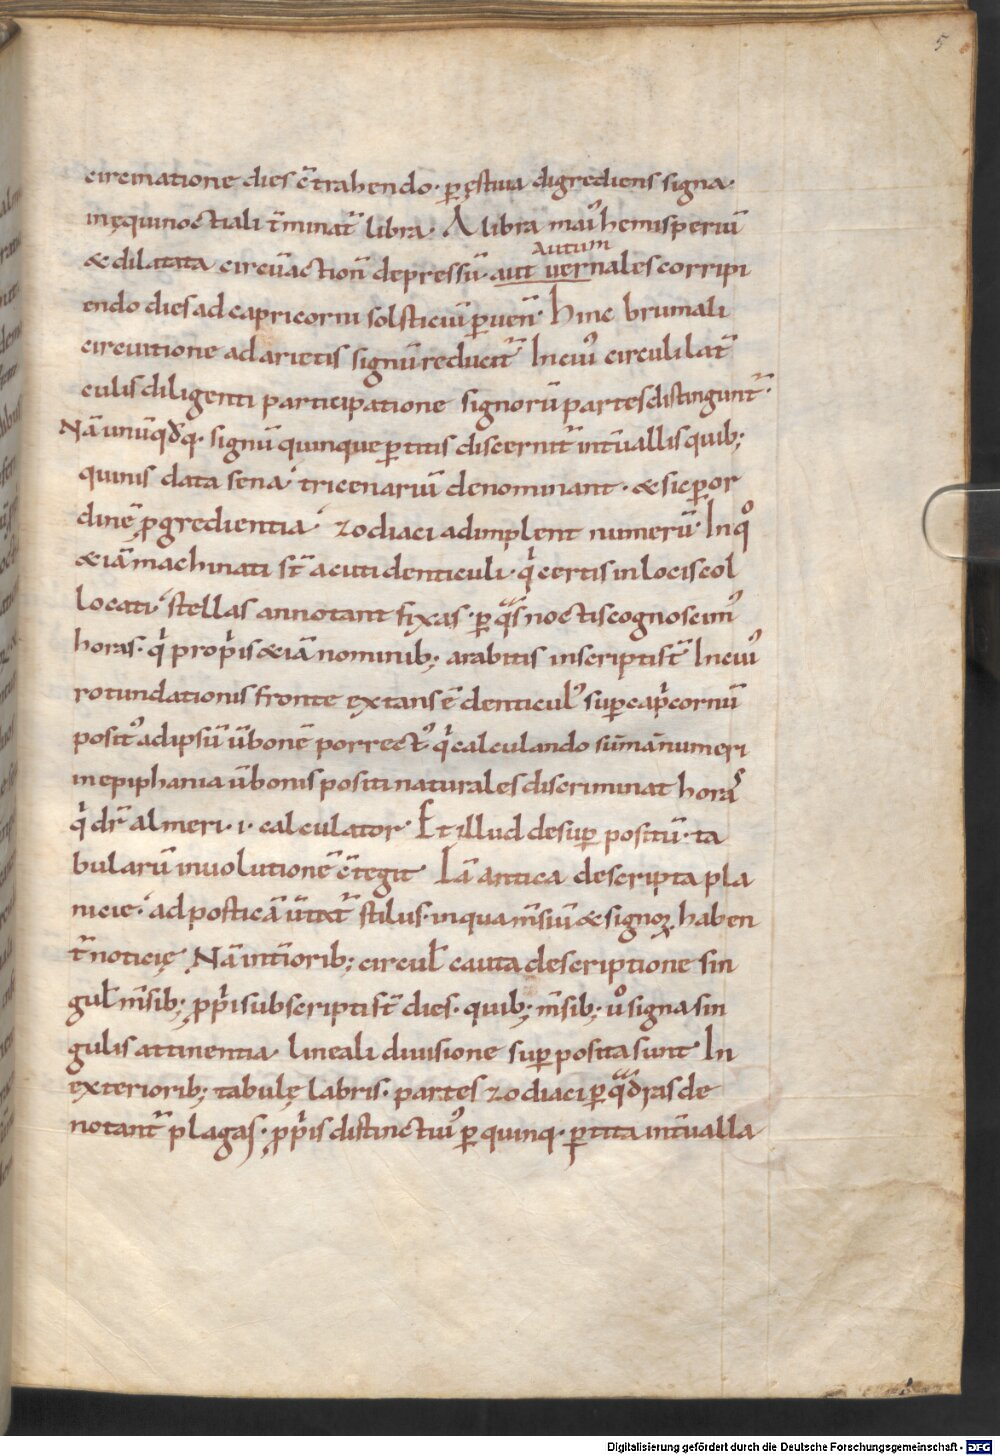 5
circinatione dies c̄trahendo· ꝑ ęstiua digrediens signa·
inęquinoctiali t̄minat᷑ libra· A libra mai᷒ hemisperiū
Autum
& dilatata circūactioñ depressū· aut uernales corripi
endo dies ad capricorni solsticiū ꝑueñ· Hinc brumali
circuitione ad arietis signū reducit᷑ In cui᷒ circuli lat᷑
culis diligenti participatione signorū partes distingunt᷑·
Nā unūqd̄q· signū quinque ꝑtitis discernit᷑ int̄uallis quib;
quinis data sena tricenariū denominant· & sic ꝑ or
dinē ꝓgredientia zodiaci adimplent numerū· In qͦ
& iā machinati st̄ acuti denticuli· qͥ certis in locis col
locati stellas annotant fixas· ꝑ qᷓs noctis cognoscim᷒
horas· qͥ propͥis & iā nominib; arabitis inscripti st̄ In cui᷒
rotundationis fronte extans ē denticul᷒ suꝑ capͥcornū
posit᷒ ad ipsū ūbonē porrect᷒ qͥ calculando sūmā numeri
in epiphania ūbonis positi naturales discriminat horas
qͥ dr̄ almeri· i· calculator· Et illud desuꝑ positū· ta
bularū inuolutionē c̄tegit Iā antica descripta pla
nicie· ad posticā ūtat᷑ stilus· in qua m̄siū & signoꝝ haben
t᷑ noticię Nā int̄iorib; circul̄ cauta descriptione sin
gul̄ m̄sib; ꝓpͥi subscripti st̄ dies· quib; m̄sib; uͦ signa sin
gulis attinentia· lineali diuisione suꝑposita sunt In
exteriorib; tabulę labris· partes zodiaci ꝑ qᷓdras de
notant᷑ plagas· ꝓpͥis distinct iu᷒ ꝑ quinq· ꝑtita int̄ualla
Digitalisierung gefördert durch die Deutsche Forschungsgemeinschaft - DFG